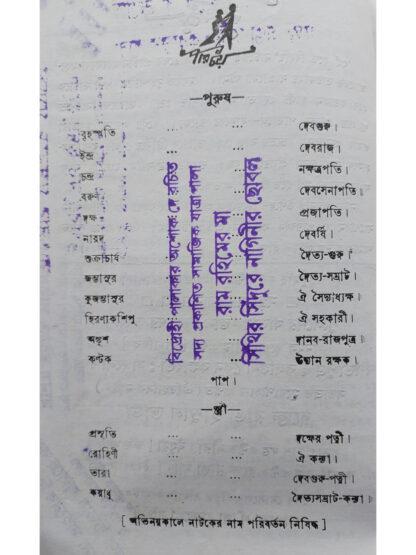 পরিচয়
—পুরুষ—
বৃহস্পতি ... ... দেবগুরু।
ইন্দ্র ... ... দেবরাজ।
চন্দ্র ... ... নক্ষত্রপতি।
বরুণ ... ... দেবসেনাপতি।
দক্ষ ... ... প্রজাপতি।
নারদ ... ... দেবর্ষি।
শুক্রাচার্য ... ... দৈত্য-গুরু।
জম্ভাসুর ... ... দৈত্য-সম্রাট।
কুজম্ভাসুর ... ... ঐ সৈন্যাধ্যক্ষ।
হিরণ্যকশিপু ... ... ঐ সহকারী।
অঙ্কুশ ... ... দানব-রাজপুত্র।
কণ্টক ... ... উদ্যান রক্ষক।
পাপ।
—স্ত্রী—
প্রসূতি ... ... দক্ষের পত্নী।
রোহিণী ... ... ঐ কন্যা।
তারা ... ... দেবগুরু-পত্নী।
কয়াধু ... ... দৈত্যসম্রাট-কন্যা।
[ অভিনয়কালে নাটকের নাম পরিবর্তন নিষিদ্ধ ]
বিদ্রোহী পালাকার অশোক দে রচিত
সদ্য প্রকাশিত সামাজিক যাত্রাপালা
রাম রহিমের মা
সিঁথির সিঁদুরে নাগিনীর ছোবল